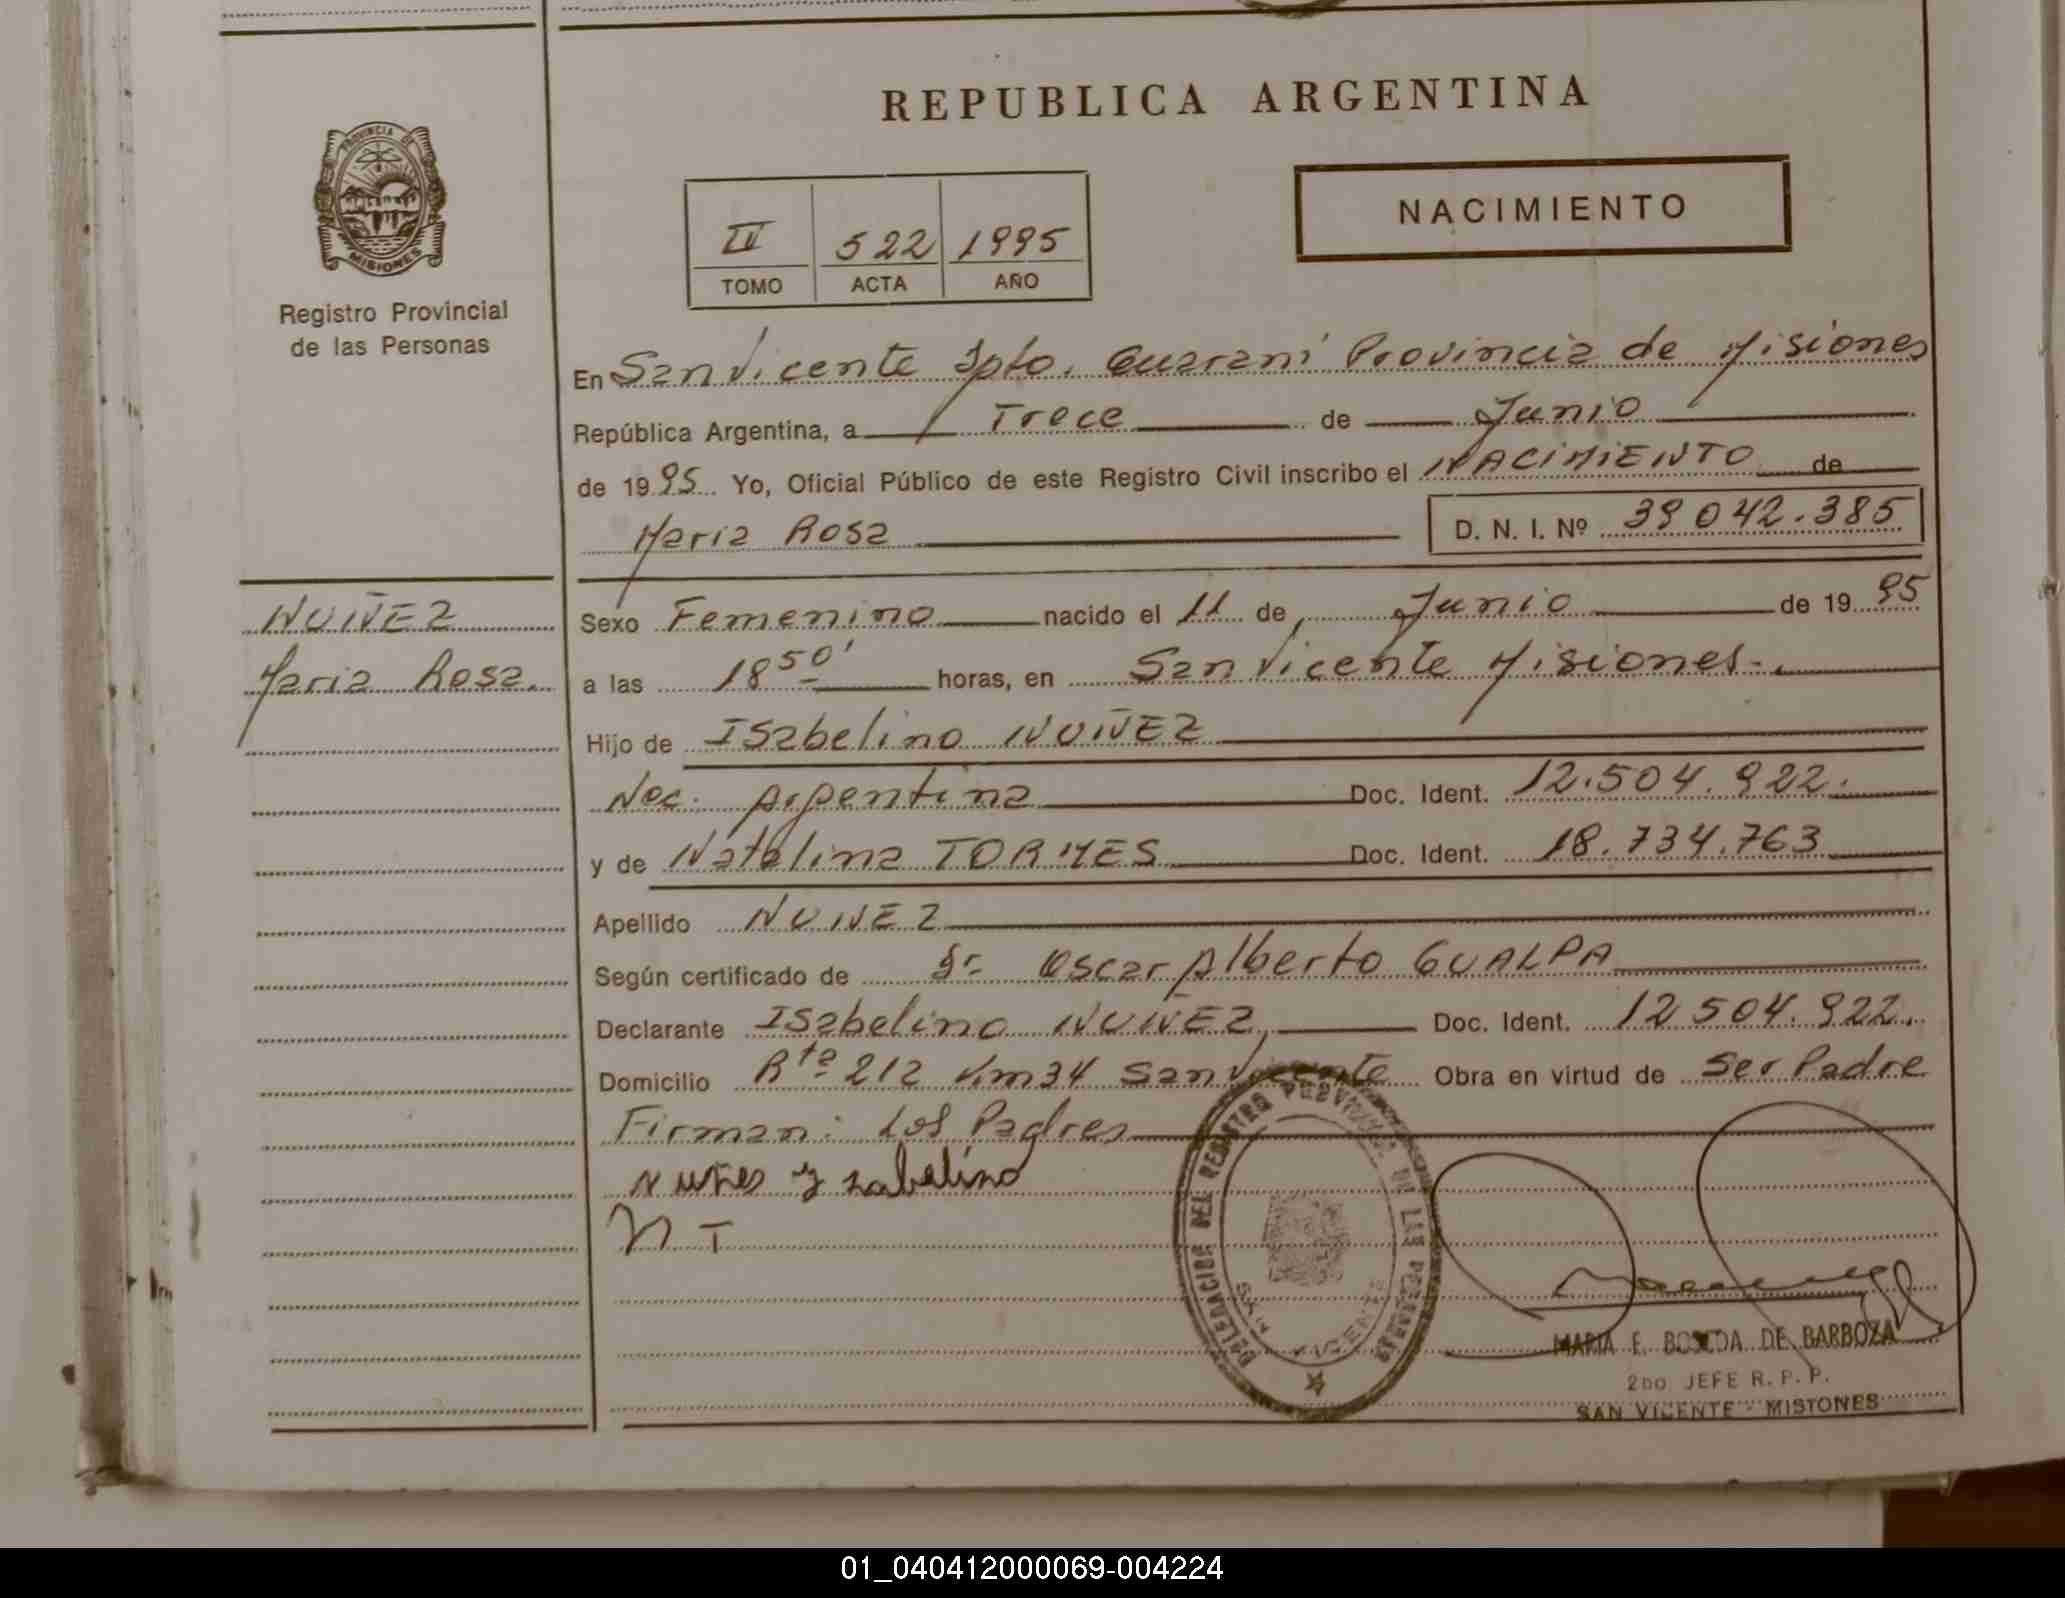 REPUBLICA ARGENTINA
PROVINCIA DE
MISIONES
Registro Provincial
de las Personas
NACIMIENTO
III 522 1995
TOMO ACTA AÑO
En San Vicente Dpto. Guaraní Provincia de Misiones
República Argentina, a Trece de Junio
de 1995 Yo, Oficial Público de este Registro Civil inscribo el NACIMIENTO de
Maria Rosa D. N. I. Nº 39 042.385
NUÑEZ
Maria Rosa.
Sexo Femenino nacido el 11 de Junio de 1995
a las 18 50' horas, en San Vicente Misiones.
Hijo de ISabelino NUÑEZ
Nac. Argentina Doc. Ident. 12.504.922.
y de Natalina TORMES Doc. Ident. 18.734.763
Apellido NUÑEZ
Según certificado de Dr Oscar Alberto GUALPA
Declarante ISabelino NUÑEZ, Doc. Ident. 12 504.922.
Domicilio Rta 212 Km34 San Vicente Obra en virtud de Ser Padre
Firman: Los Padres
Nuñes y zabelino
N T
DELEGACION DEL REGISTRO PROVINCIAL DE LAS PERSONAS
SAN VICENTE
MARIA E. DE BARBOZA
2DO JEFE R. P. P.
SAN VICENTE - MISIONES
01_040412000069-004224